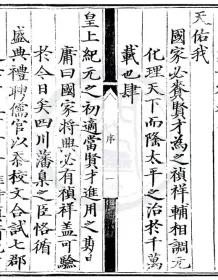 天佑我
國家必養賢才為之禎祥輔相調元
化理天下而隆太平之治於千萬
載也肆
序
皇上紀元之初適當賢才進用之期日
庸曰國家將興必有禎祥蓋可驗
於今日矣四川藩臬之臣恪循
盛典禮聘儒官以恭校文合試七郡